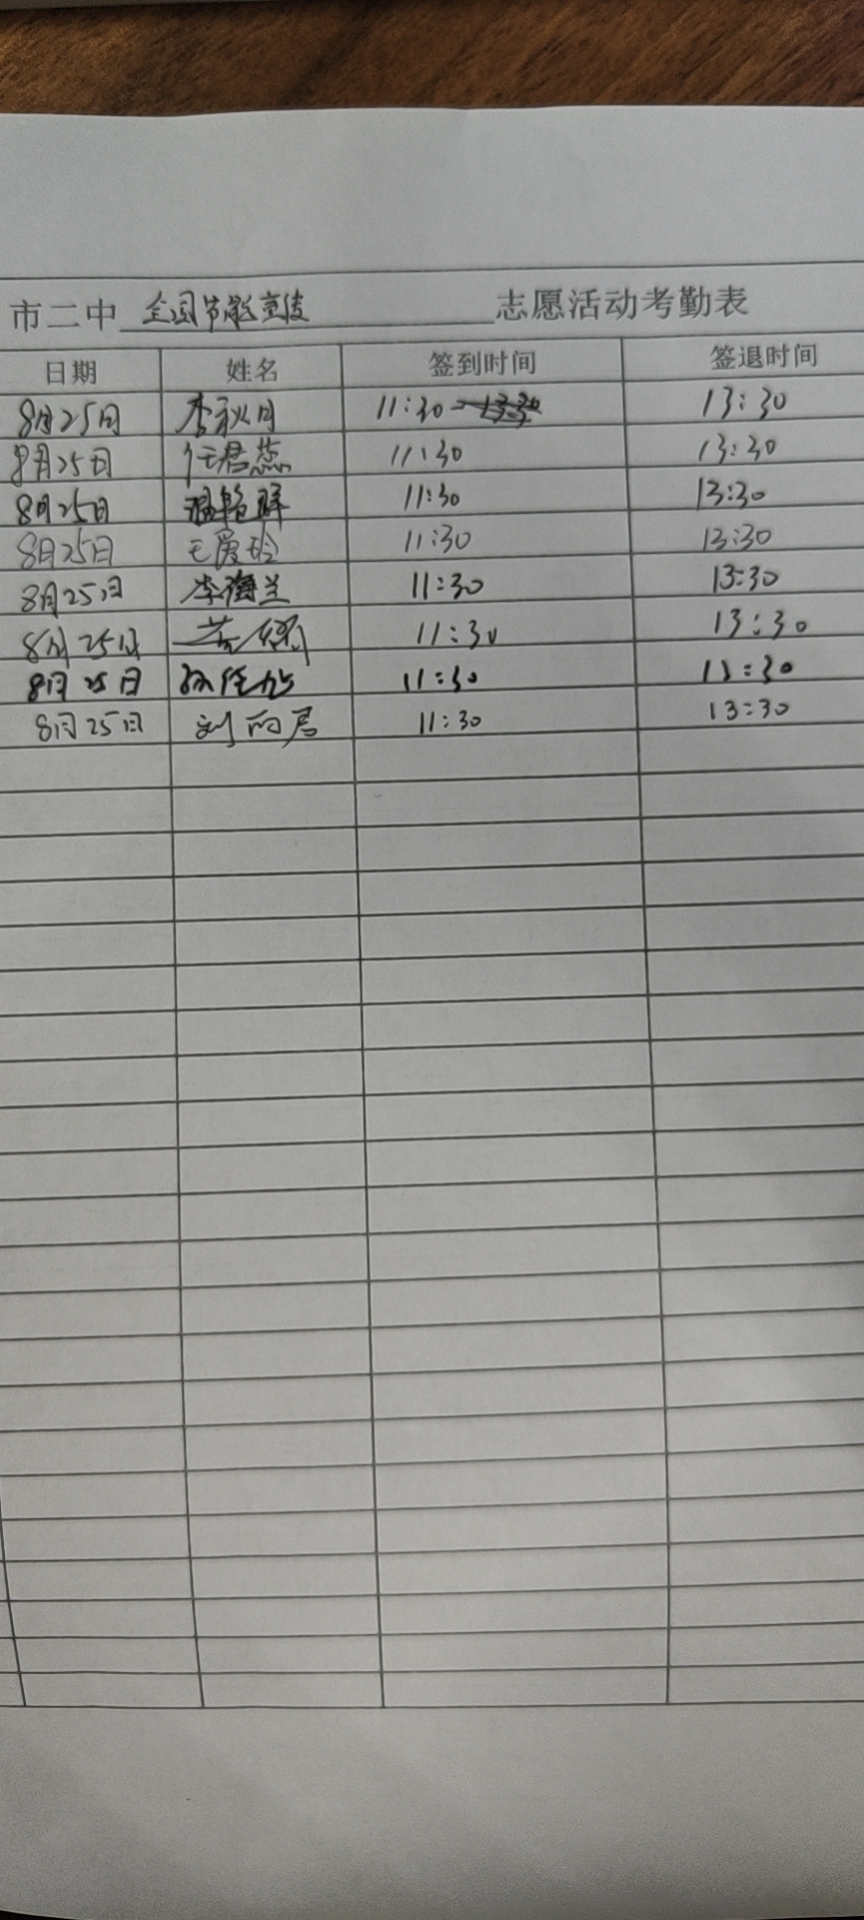 市二中 全国节能宣传 志愿活动考勤表
日期 姓名 签到时间 签退时间
8月25日 李秋月 11:30 13:30
8月25日 任君蕊 11:30 13:30
8月25日 温艳群 11:30 13:30
8月25日 王爱玲 11:30 13:30
8月25日 李海兰 11:30 13:30
8月25日 11:30 13:30
8月25日 11:30 13:30
8月25日 刘丽君 11:30 13:30